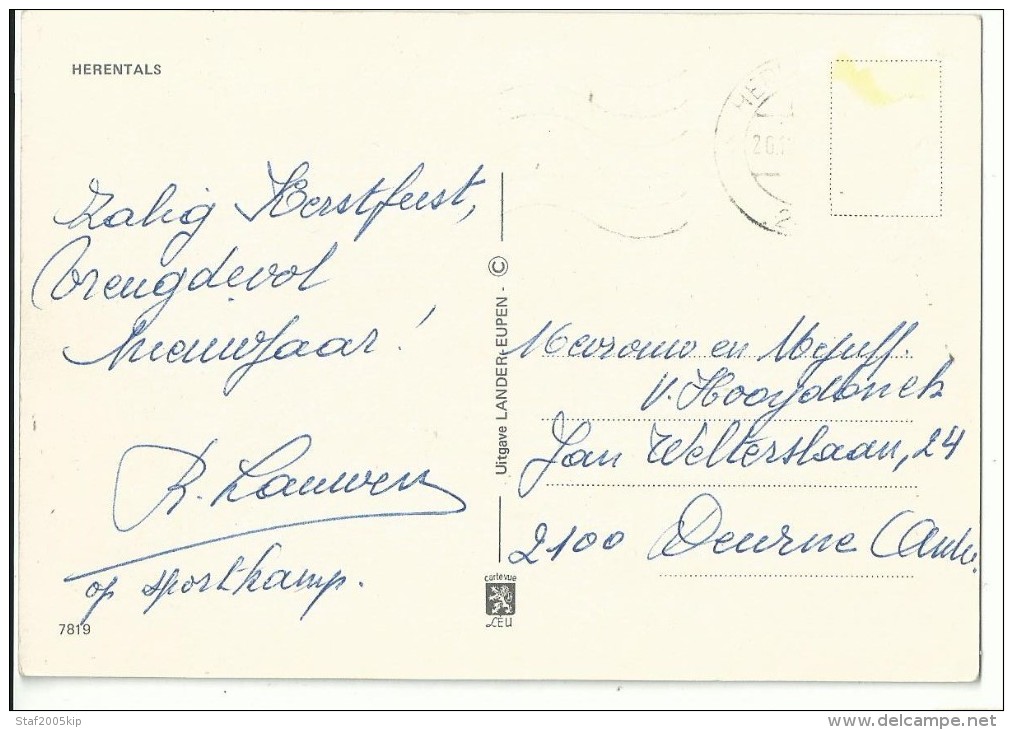 HERENTALS
20.
Zalig Kerstfeest,
Vreugdevol
Nieuwjaar!
R. Lauwers
op sportkamp.
7819
Uitgave LANDER-EUPEN - ©
cartevue
LEU
Mevrouw en Mejuff.
V. Hooydonck
Jan Welterslaan, 24
2100 Deurne (Antw.
Staf2005kip
delcampe.net